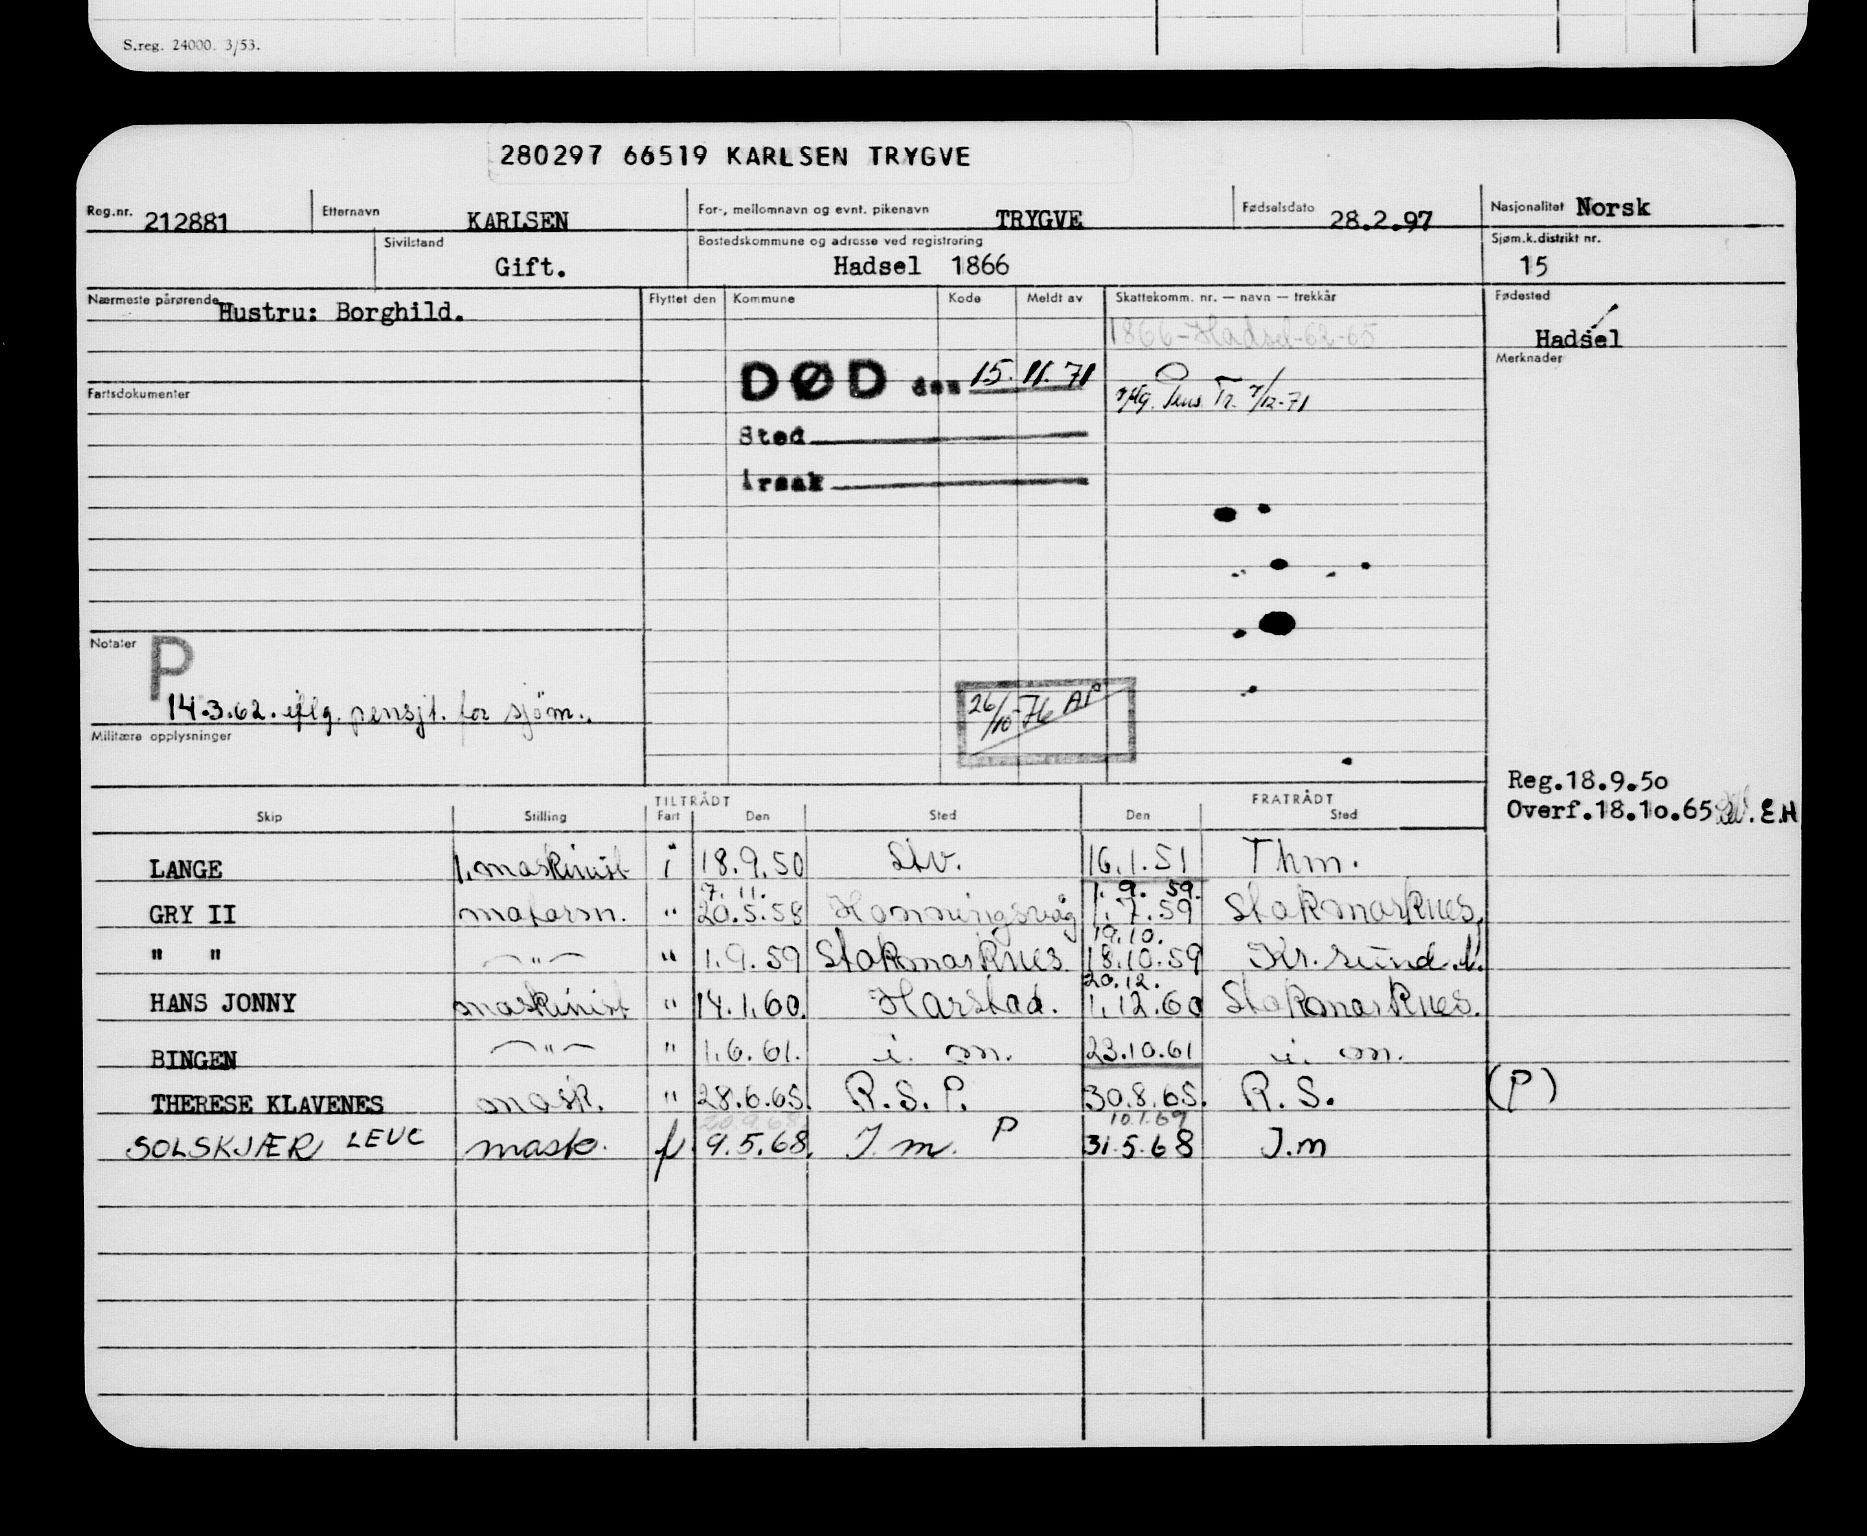 S.reg. 24000. 3/53.
280297 66519 KARLSEN TRYGVE
Reg.nr. 212881 Etternavn KARLSEN For-, mellomnavn og evnt. pikenavn TRYGVE Fødselsdato 28.2.97 Nasjonalitet Norsk
Sivilstand Gift. Bostedskommune og adresse ved registrering Hadsel 1866 Sjøm.k.distrikt nr. 15
Nærmeste pårørende Hustru: Borghild. Flyttet den Kommune Kode Meldt av Skattekomm. nr. — navn — trekkår Fødested
1866-Hadsel-62-65
Hadsel
Merknader
DØD den 15.11.71
Fartsdokumenter
iflg. Pens. Tr. 7/12-71
Sted
Årsak
Notater P
14.3.62. iflg. pensjt. for sjøm.
26/10-76 AP
Militære opplysninger
Reg.18.9.50
Overf.18.10.65 . E.H
TILTRÅDT FRATRÅDT
Skip Stilling Fart Den Sted Den Sted
LANGE 1.maskinist i 18.9.50 Stv. 16.1.51 Thm.
7.11. 1.9.59.
GRY II " 20.5.58 Honningsvåg 1.7.59 Stokmarknes.
19.10.
" " —"— " 1.9.59 Stokmarknes 18.10.59 Kr.sund.N.
20.12.
HANS JONNY maskinist " 14.1.60. Harstad. 1.12.60 Stokmarknes.
BINGEN —"— " 1.6.61. i. m. 23.10.61 i. m.
THERESE KLAVENES mask. " 28.6.65. R.S.P. 30.8.65. R.S. (P)
20.9.68 10.1.69
SOLSKJÆR LEUC mask. f 9.5.68. I.m. P 31.5.68 I.m